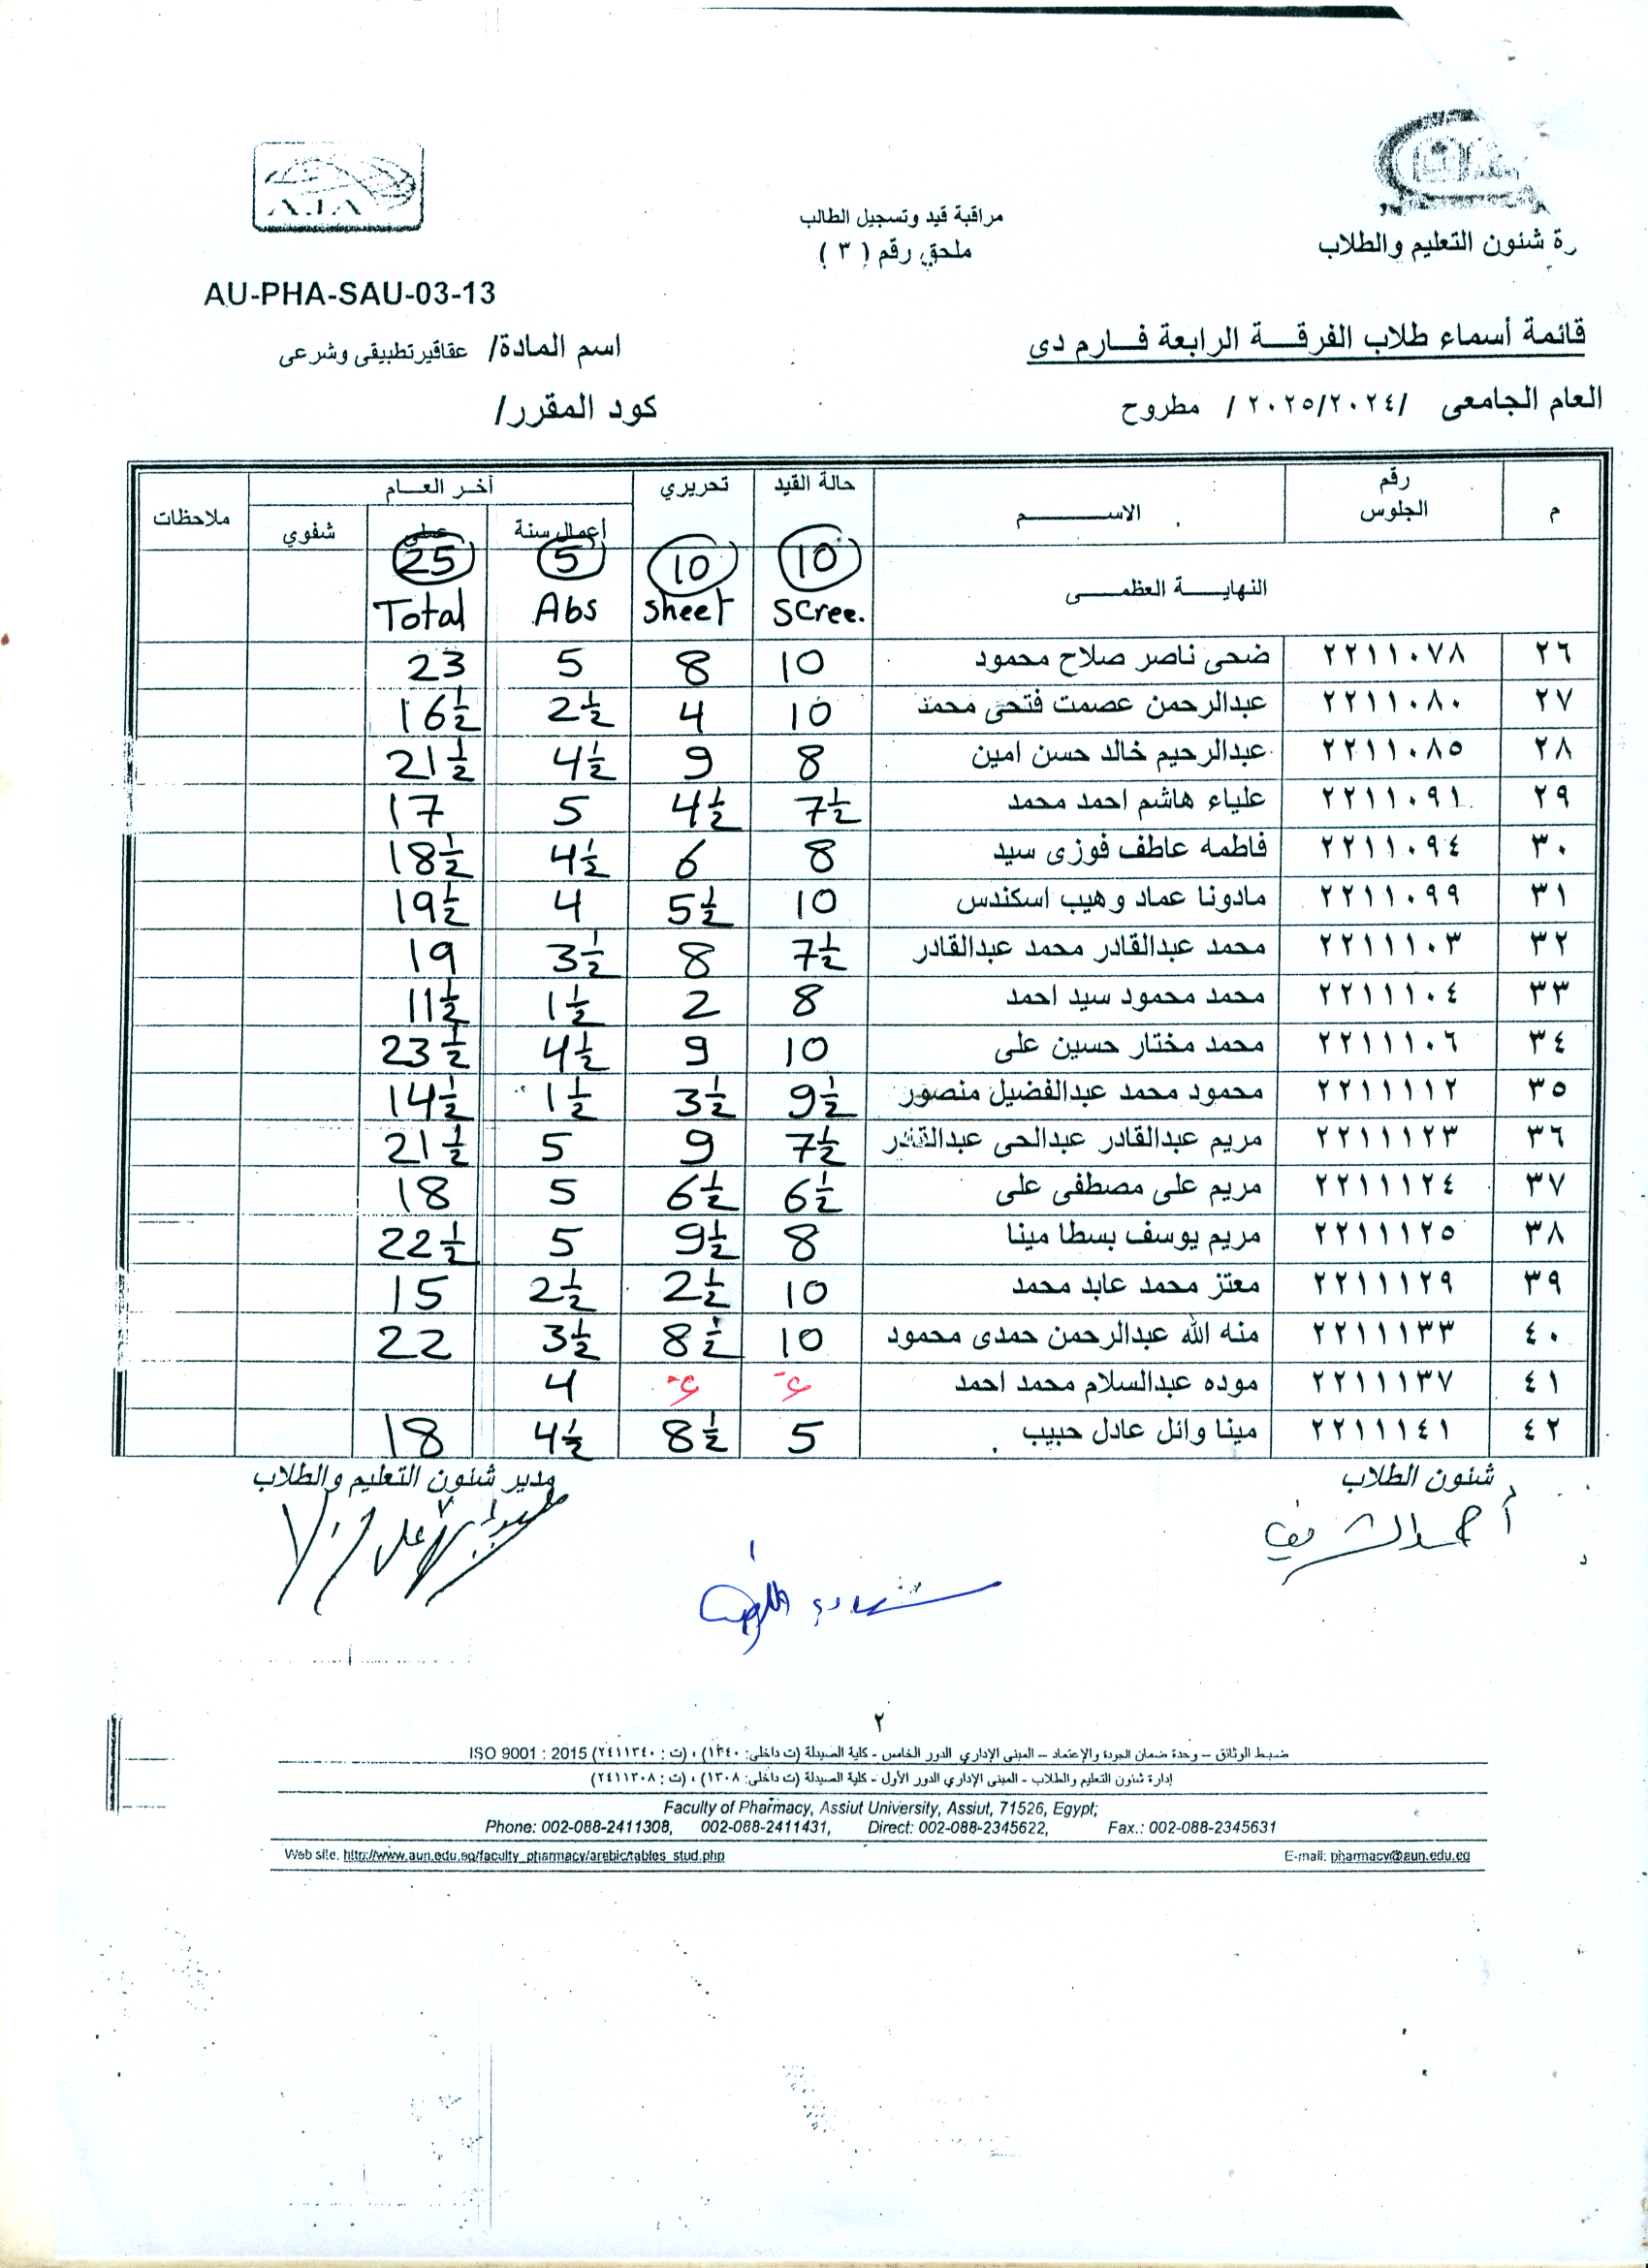 AJA
مراقبة قيد وتسجيل الطالب
ملحق رقم ( ٣ )
رة شئون التعليم والطلاب
AU-PHA-SAU-03-13
قائمة أسماء طلاب الفرقة الرابعة فارم دى
اسم المادة/ عقاقيرتطبيقى وشرعى
العام الجامعى /٢٠٢٥/٢٠٢٤ / مطروح
كود المقرر/
م رقم الجلوس الاسم حالة القيد تحريري أخر العام ملاحظات
أعمال سنة عملى شفوي
النهاية العظمى 10 Scree. 10 Sheet 5 Abs 25 Total
٢٦ ٢٢١١٠٧٨ ضحى ناصر صلاح محمود 10 8 5 23
٢٧ ٢٢١١٠٨٠ عبدالرحمن عصمت فتحى محمد 10 4 2½ 16½
٢٨ ٢٢١١٠٨٥ عبدالرحيم خالد حسن امين 8 9 4½ 21½
٢٩ ٢٢١١٠٩١ علياء هاشم احمد محمد 7½ 4½ 5 17
٣٠ ٢٢١١٠٩٤ فاطمه عاطف فوزى سيد 8 6 4½ 18½
٣١ ٢٢١١٠٩٩ مادونا عماد وهيب اسكندس 10 5½ 4 19½
٣٢ ٢٢١١١٠٣ محمد عبدالقادر محمد عبدالقادر 7½ 8 3½ 19
٣٣ ٢٢١١١٠٤ محمد محمود سيد احمد 8 2 1½ 11½
٣٤ ٢٢١١١٠٦ محمد مختار حسين على 10 9 4½ 23½
٣٥ ٢٢١١١١٢ محمود محمد عبدالفضيل منصور 9½ 3½ 1½ 14½
٣٦ ٢٢١١١٢٣ مريم عبدالقادر عبدالحى عبدالقادر 7½ 9 5 21½
٣٧ ٢٢١١١٢٤ مريم على مصطفى على 6½ 6½ 5 18
٣٨ ٢٢١١١٢٥ مريم يوسف بسطا مينا 8 9½ 5 22½
٣٩ ٢٢١١١٢٩ معتز محمد عابد محمد 10 2½ 2½ 15
٤٠ ٢٢١١١٣٣ منه الله عبدالرحمن حمدى محمود 10 8½ 3½ 22
٤١ ٢٢١١١٣٧ موده عبدالسلام محمد احمد غ غ 4
٤٢ ٢٢١١١٤١ مينا وائل عادل حبيب 5 8½ 4½ 18
شئون الطلاب مدير شئون التعليم والطلاب
أحمد الشريف
٢
ضبط الوثائق – وحدة ضمان الجودة والإعتماد – المبنى الإداري الدور الخامس - كلية الصيدلة (ت داخلى: ١٣٤٠) ، (ت : ٢٤١١٣٤٠) ISO 9001 : 2015
إدارة شئون التعليم والطلاب - المبنى الإداري الدور الأول - كلية الصيدلة (ت داخلى: ١٣٠٨) ، (ت : ٢٤١١٣٠٨)
Faculty of Pharmacy, Assiut University, Assiut, 71526, Egypt;
Phone: 002-088-2411308, 002-088-2411431, Direct: 002-088-2345622, Fax.: 002-088-2345631
Web site. http://www.aun.edu.eg/faculty_pharmacy/arebic/tables_stud.php E-mail: pharmacy@aun.edu.eg